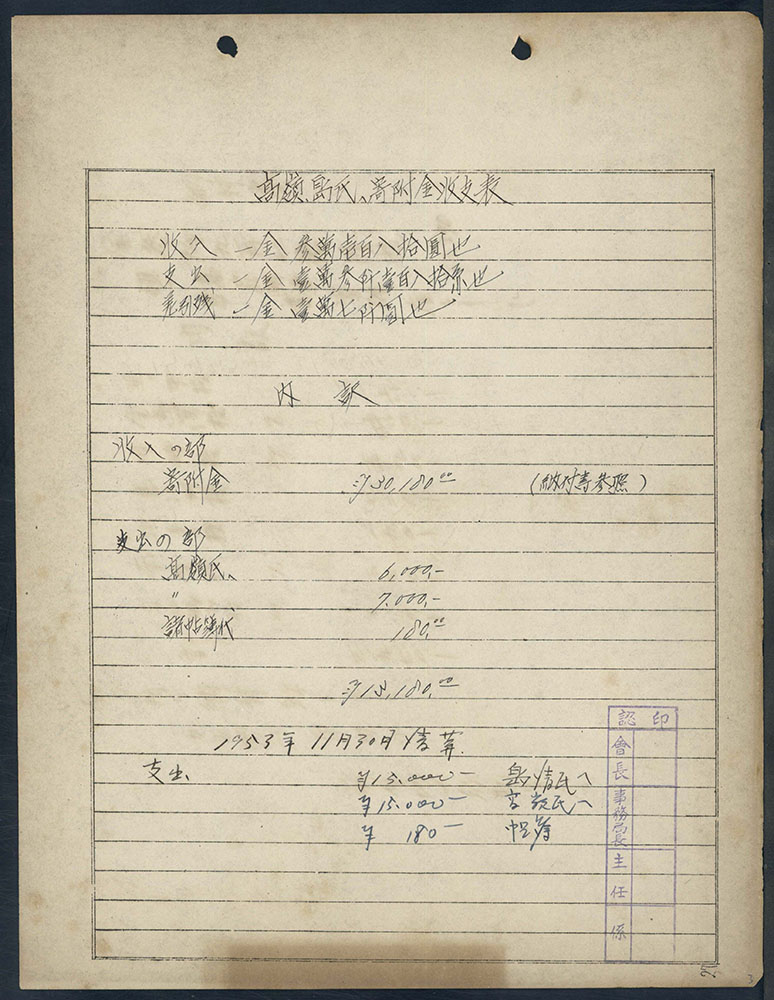 高嶺、島氏、寄附金收支表
收入 一金 参萬壱百八拾圓也
支出 一金 壱萬参阡壱百八拾円也
差引残 一金 壱萬七阡圓也
内 訳
收入の部
寄附金 ¥30,180.00 (納付書参照)
支出の部
高嶺氏、 6,000.-
〃 7,000.-
諸帖簿代 180.00
¥13,180.00
1953年 11月30日 清算
支出 ¥15.000- 島清氏へ
¥15.000- 高嶺氏へ
¥ 180-
認印
會長
事務局長
主任
係